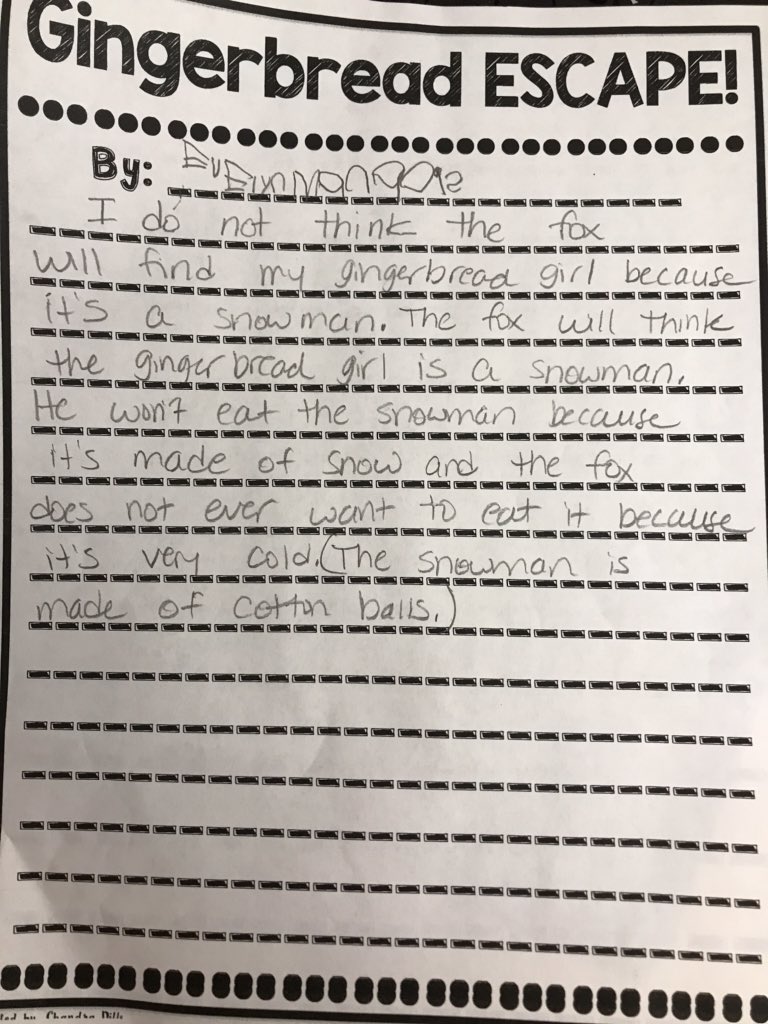 Gingerbread ESCAPE!
By:
I do not think the fox
will find my gingerbread girl because
it's a snowman. The fox will think
the gingerbread girl is a snowman.
He won't eat the snowman because
it's made of snow and the fox
does not ever want to eat it because
it's very cold. (The snowman is
made of cotton balls.)
ted by Chandra Dills